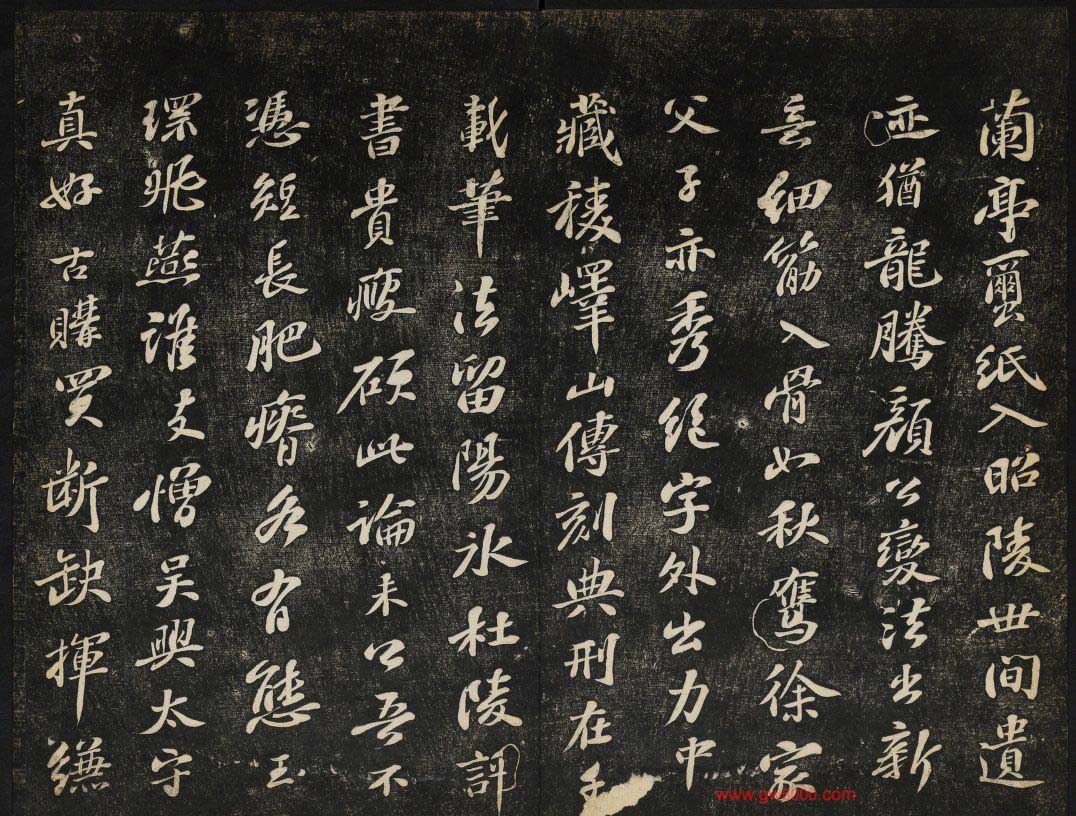 蘭亭蠒紙入昭陵世間遺
迹猶龍騰顔公變法出新
意細筋入骨如秋鷹徐家
父子亦秀絕字外出力中
藏稜嶧山傳刻典刑在千
載筆法留陽冰杜陵評
書貴瘦硬此論未公吾不
憑短長肥瘠各有態玉
環飛燕誰敢憎吳興太守
真好古購買断缺揮縑